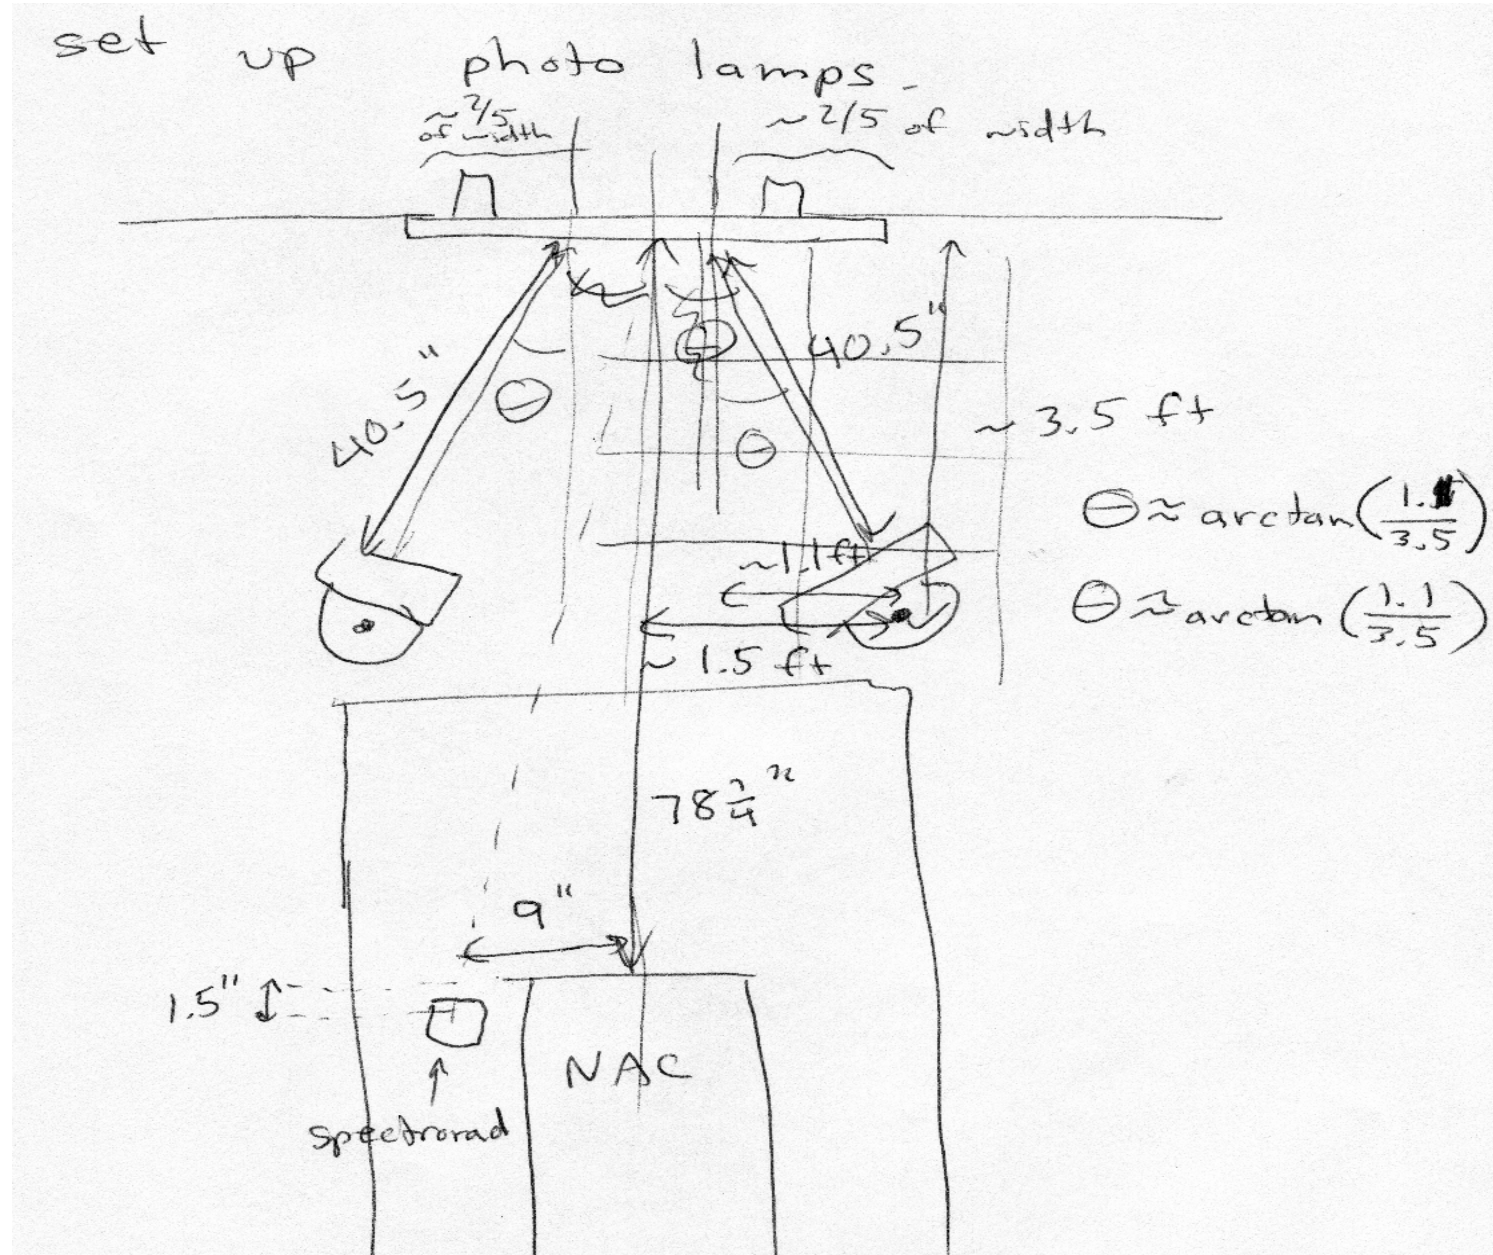 set up photo lamps
~2/5
of width
~2/5 of width
40.5"
θ
θ
40.5"
θ
~ 3.5 ft
θ ≈ arctan(1./3.5)
~1.1ft
θ ≈ arctan(1.1/3.5)
~ 1.5 ft
78 3/4"
9"
1.5"
NAC
spectrorad